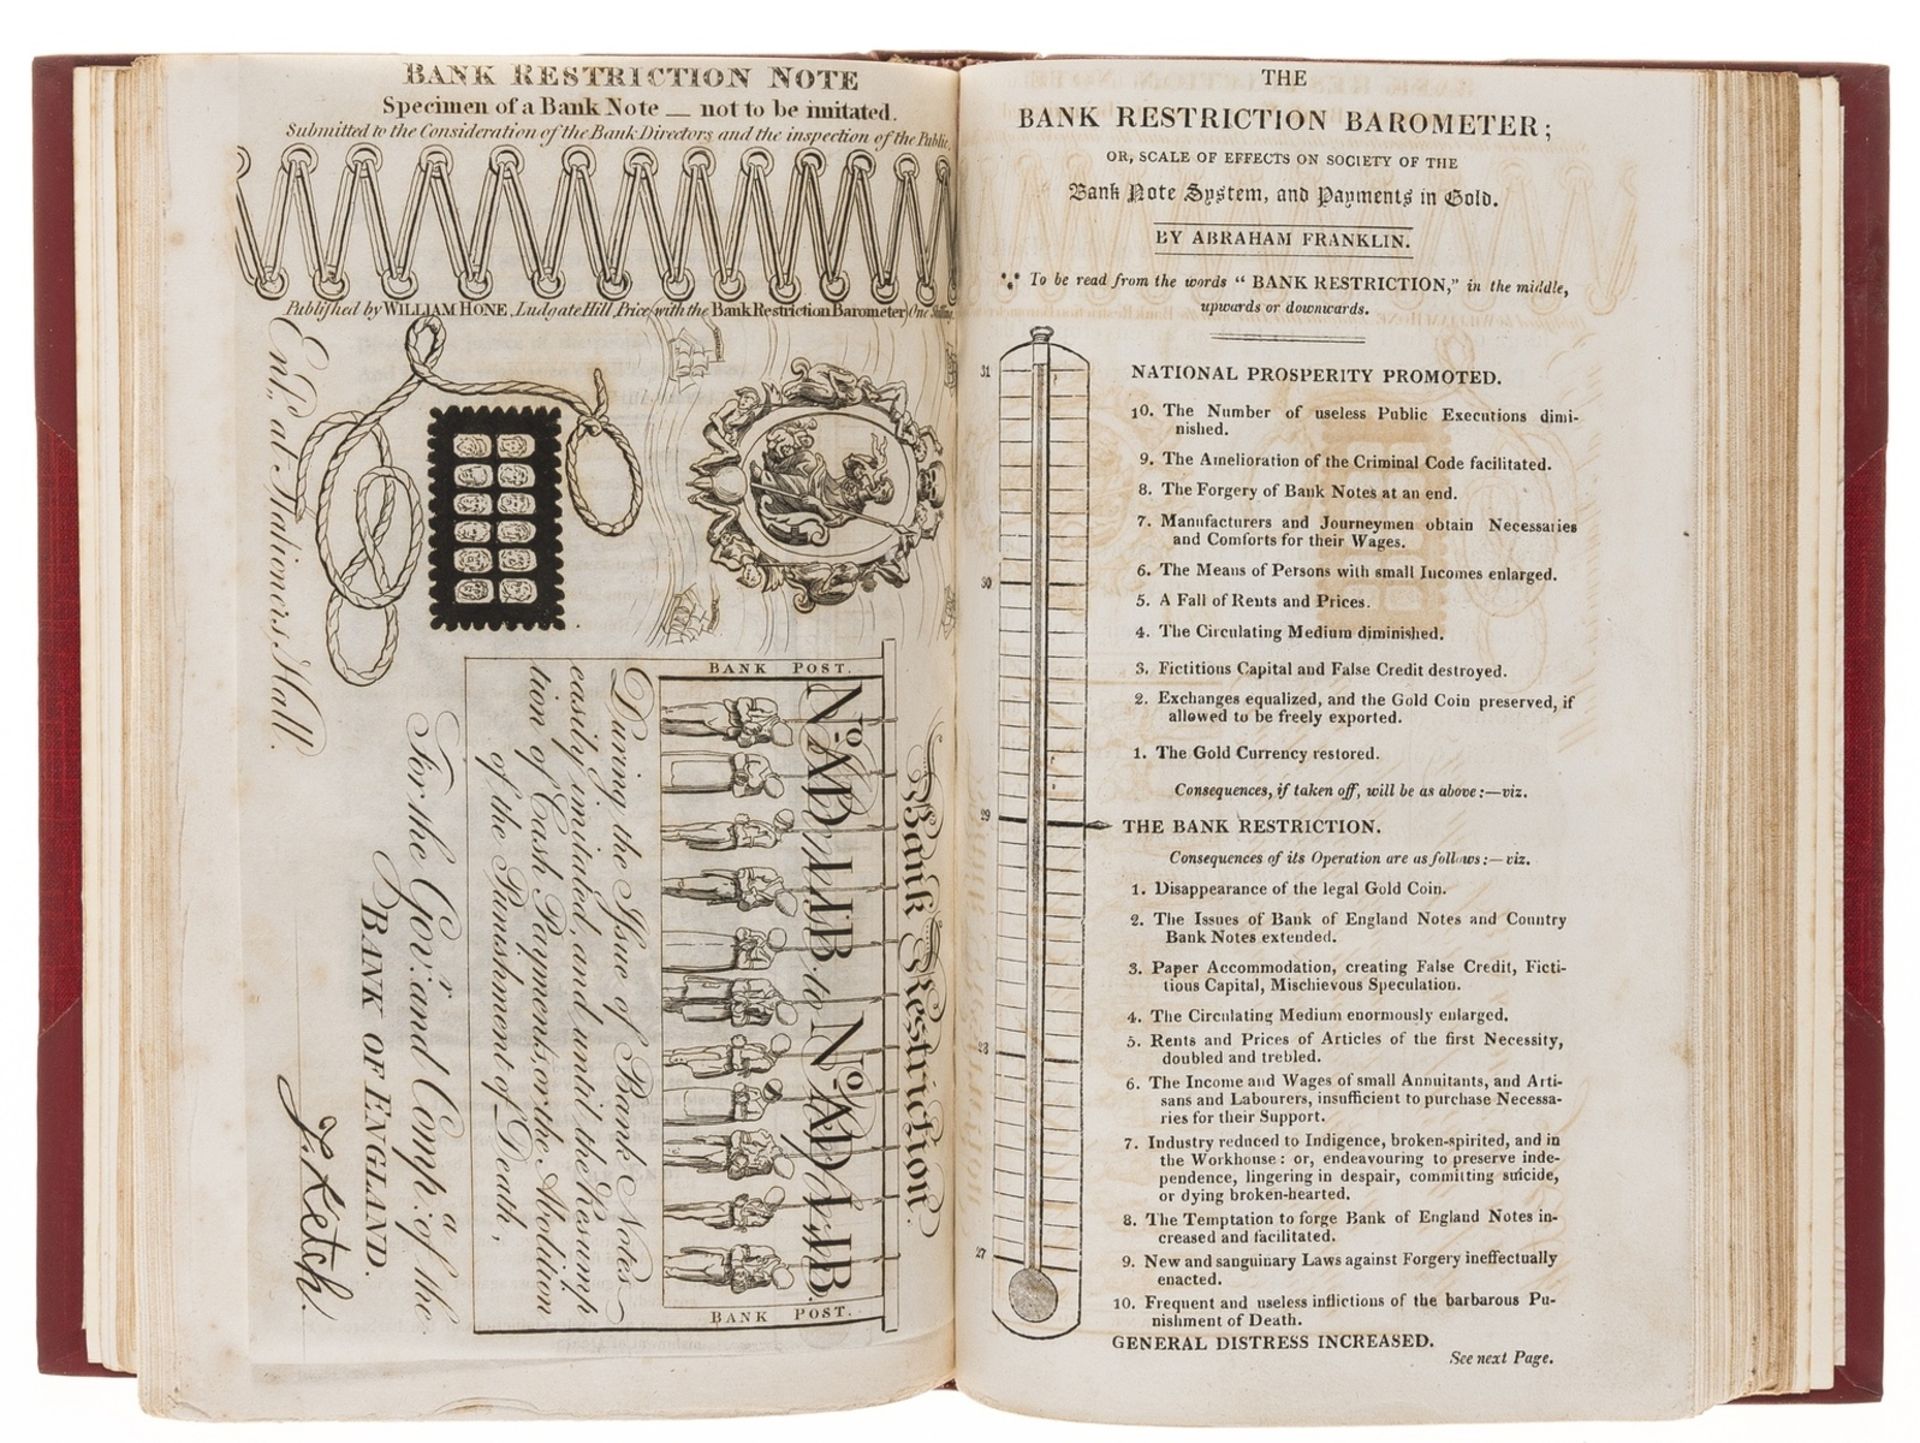 BANK RESTRICTION NOTE
Specimen of a Bank Note — not to be imitated.
Submitted to the Consideration of the Bank Directors and the inspection of the Public.
Published by WILLIAM HONE, Ludgate Hill, Price (with the Bank Restriction Barometer) One Shilling.
Entd. at Stationers Hall.
Bank Restriction.
BANK POST.
No. AD. LIB. to No. AD. LIB.
BANK POST.
During the Issue of Bank Notes
easily imitated, and until the Resump
tion of Cash Payments, or the Abolition
of the Punishment of Death,
For the Govr. and Compa. of the
BANK OF ENGLAND.
J. Ketch.
THE
BANK RESTRICTION BAROMETER;
OR, SCALE OF EFFECTS ON SOCIETY OF THE
Bank Note System, and Payments in Gold.
BY ABRAHAM FRANKLIN.
To be read from the words “ BANK RESTRICTION,” in the middle,
upwards or downwards.
31
30
29
28
27
NATIONAL PROSPERITY PROMOTED.
10. The Number of useless Public Executions dimi-
nished.
9. The Amelioration of the Criminal Code facilitated.
8. The Forgery of Bank Notes at an end.
7. Manufacturers and Journeymen obtain Necessaries
and Comforts for their Wages.
6. The Means of Persons with small Incomes enlarged.
5. A Fall of Rents and Prices.
4. The Circulating Medium diminished.
3. Fictitious Capital and False Credit destroyed.
2. Exchanges equalized, and the Gold Coin preserved, if
allowed to be freely exported.
1. The Gold Currency restored.
Consequences, if taken off, will be as above:—viz.
THE BANK RESTRICTION.
Consequences of its Operation are as follows:—viz.
1. Disappearance of the legal Gold Coin.
2. The Issues of Bank of England Notes and Country
Bank Notes extended.
3. Paper Accommodation, creating False Credit, Ficti-
tious Capital, Mischievous Speculation.
4. The Circulating Medium enormously enlarged.
5. Rents and Prices of Articles of the first Necessity,
doubled and trebled.
6. The Income and Wages of small Annuitants, and Arti-
sans and Labourers, insufficient to purchase Necessa-
ries for their Support.
7. Industry reduced to Indigence, broken-spirited, and in
the Workhouse: or, endeavouring to preserve inde-
pendence, lingering in despair, committing suicide,
or dying broken-hearted.
8. The Temptation to forge Bank of England Notes in-
creased and facilitated.
9. New and sanguinary Laws against Forgery ineffectually
enacted.
10. Frequent and useless inflictions of the barbarous Pu-
nishment of Death.
GENERAL DISTRESS INCREASED.
See next Page.